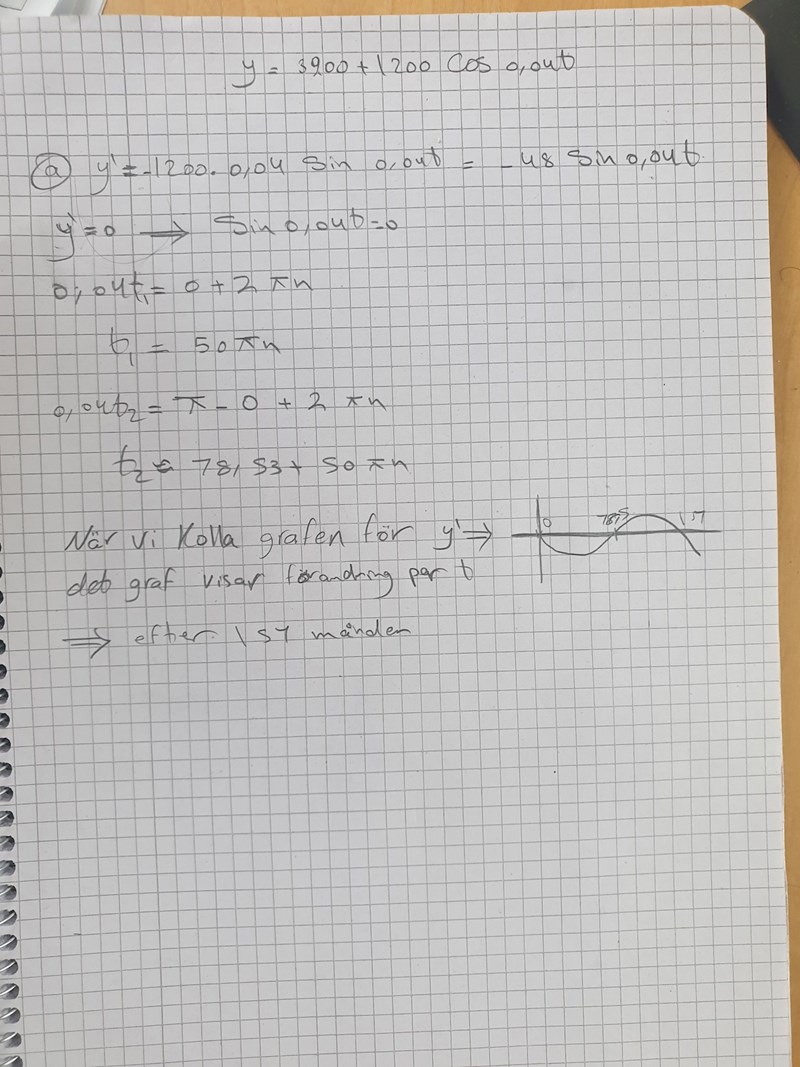 y = 3900 + 1200 Cos 0,04t
(a) y' = -1200. 0,04 Sin 0,04t = -48 Sin 0,04t
y' = 0 → Sin 0,04t = 0
0,04t₁ = 0 + 2πn
t₁ = 50πn
0,04t₂ = π - 0 + 2πn
t₂ = 78,53 + 50πn
När vi Kolla grafen för y' ⇒
0 78,5 157
det graf visar förandring per t
⇒ efter 157 månden